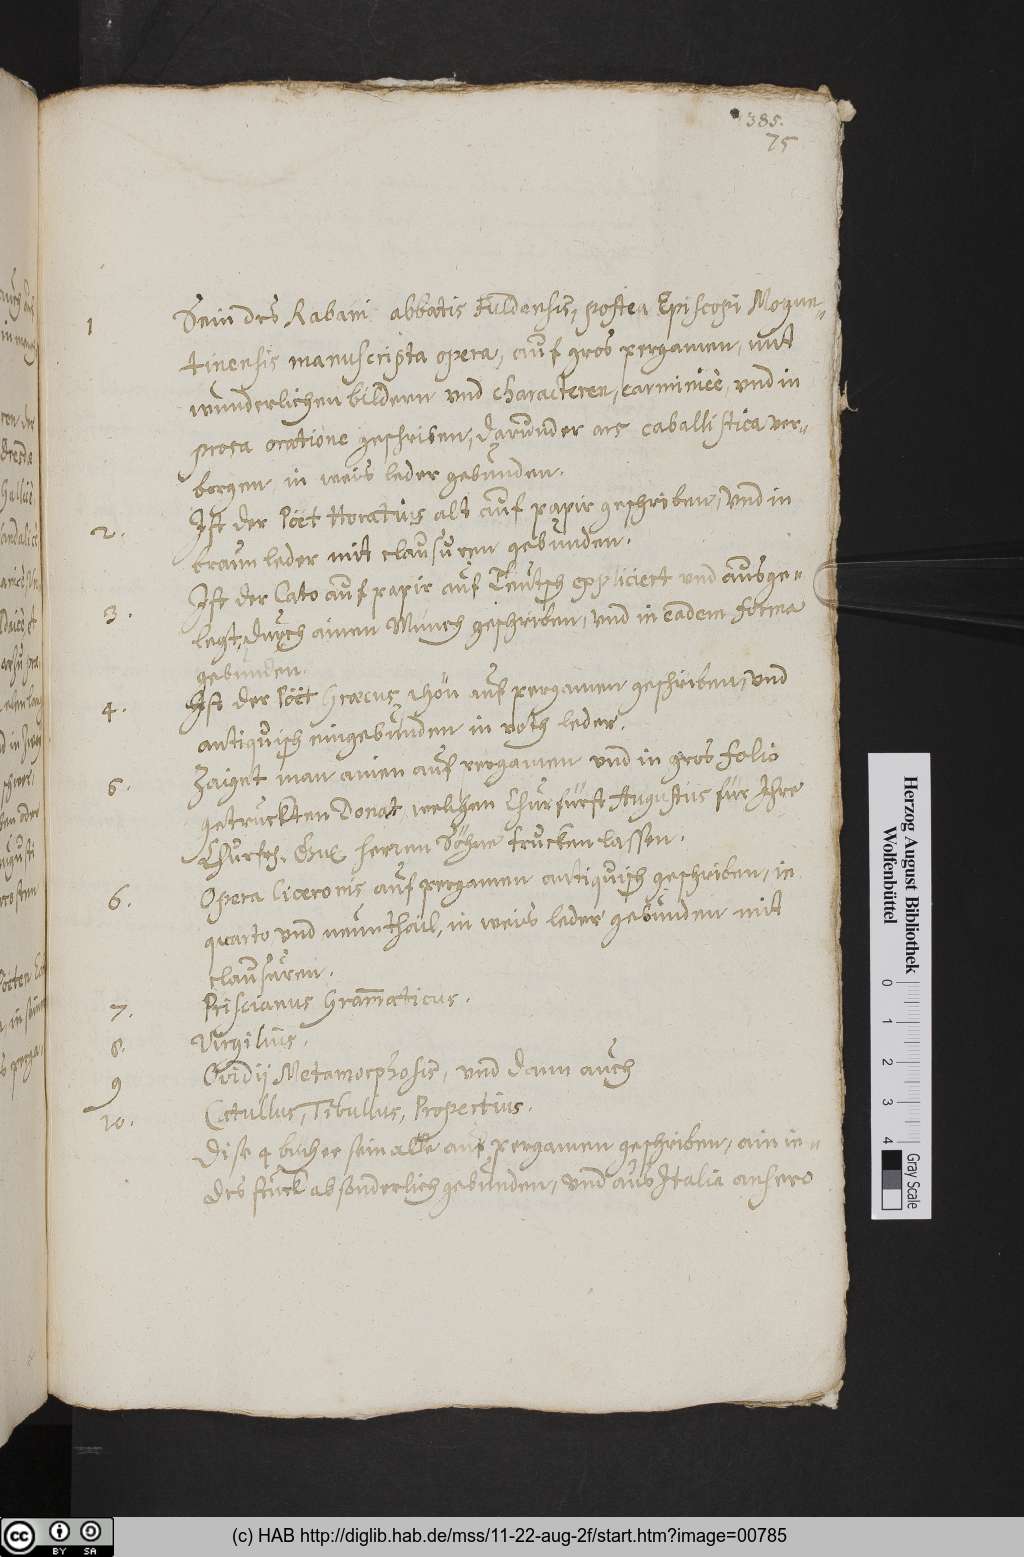 385.
75
1 Sein des Rabani abbatis Fuldensis, postea Episcopi Mogun-
tinensis manuscripta opera, auf gros pergamen, mit
wunderlichen bildern und characteren, carminicè, und in
prosa oratione geschriben, darunder ars caballistica ver-
borgen, in weis leder gebunden.
2. Ist der Poët Horatius alt auf papir geschriben, und in
braun leder mit clausuren gebunden.
3. Ist der Cato auf papir auf Teutsch expliciert und ausge-
legt, durch ainen Münch geschriben, und in eadem forma
gebunden.
4. Ist der Poët Graecus, schön auf pergamen geschriben, und
antiquisch eingebunden in roth leder.
5. Zaiget man ainen auf pergamen und in gros folio
getruckten Donat, welchen Churfürst Augustus für Ihre
Churfs. herren Söhne trucken lassen.
6. Opera Ciceronis auf pergamen antiquisch geschriben, in
quarto, und neun thail, in weis leder gebunden mit
clausuren.
7. Priscianus Grammaticus.
8. Virgilius.
9 Ovidij Metamorphosis, und dann auch
10. Catullus, Tibullus, Propertius.
Dise 4 bücher sein alle auf pergamen geschriben, ain ie-
des stuck absonderlich gebunden, und aus Italia ansero
Herzog August Bibliothek
Wolfenbüttel
0 1 2 3 4
Gray Scale
cc BY SA
(c) HAB http://diglib.hab.de/mss/11-22-aug-2f/start.htm?image=00785